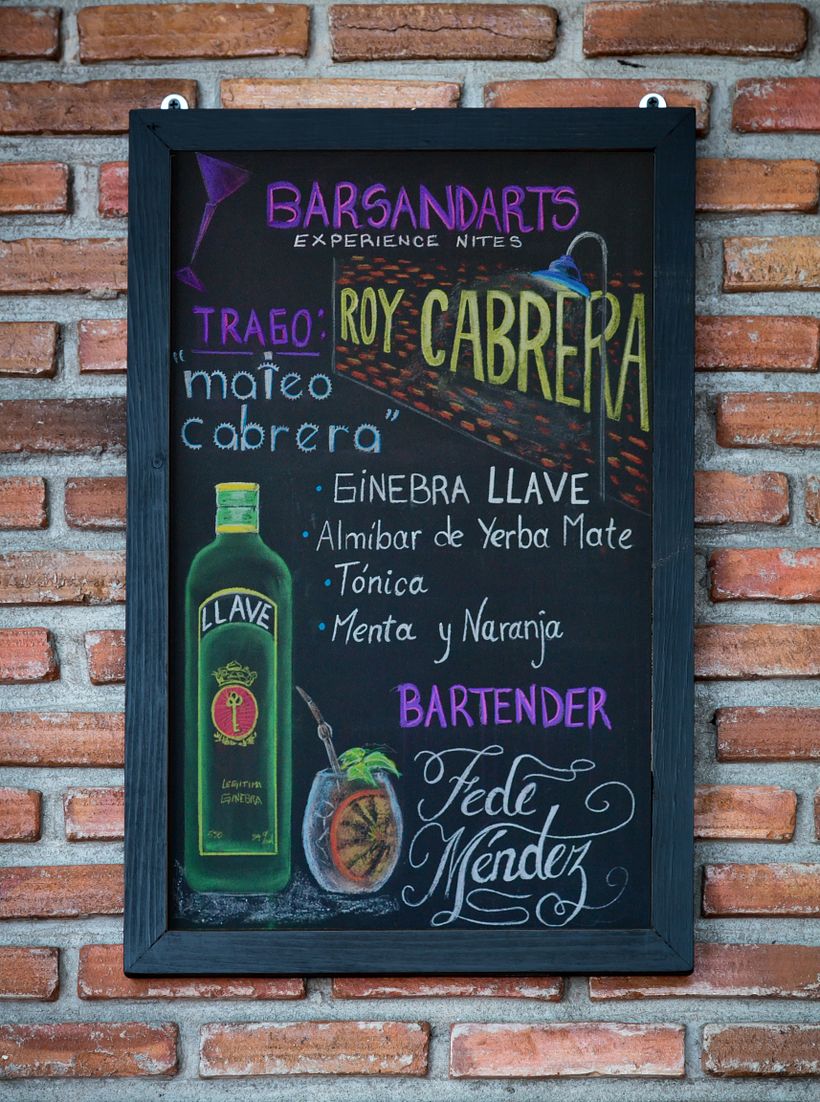 BARSANDARTS
EXPERIENCE NITES
TRAGO:
"mateo
cabrera"
ROY CABRERA
• GINEBRA LLAVE
• Almíbar de Yerba Mate
• Tónica
• Menta y Naranja
LLAVE
LEGITIMA
GINEBRA
BARTENDER
Fede
Méndez